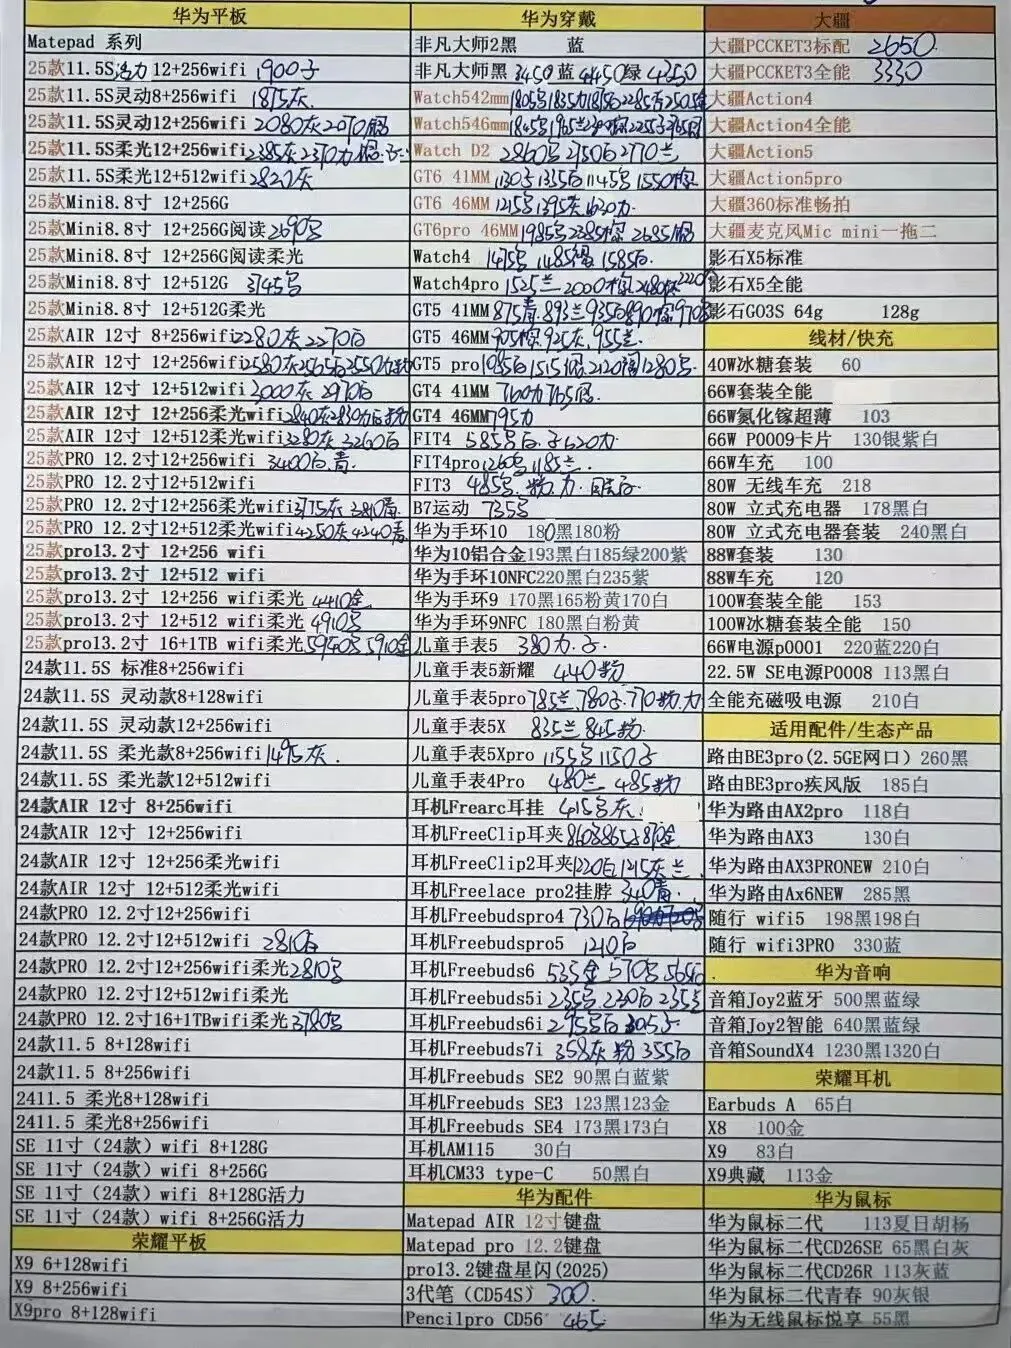 华为平板
Matepad 系列
25款11.5S活力 12+256wifi 1900子
25款11.5S灵动8+256wifi 1875灰
25款11.5S灵动12+256wifi 2080灰2070
25款11.5S柔光12+256wifi2385灰2370力
25款11.5S柔光12+512wifi2820灰
25款Mini8.8寸 12+256G
25款Mini8.8寸 12+256G阅读2690
25款Mini8.8寸 12+256G阅读柔光
25款Mini8.8寸 12+512G 3145
25款Mini8.8寸 12+512G柔光
25款AIR 12寸 8+256wifi2280灰2270白
25款AIR 12寸 12+256wifi2580灰2565白2550
25款AIR 12寸 12+512wifi 3000灰2970白
25款AIR 12寸 12+256柔光wifi2840灰2830
25款AIR 12寸 12+512柔光wifi3280灰3260白
25款PRO 12.2寸12+256wifi 3400白.青
25款PRO 12.2寸12+512wifi
25款PRO 12.2寸12+256柔光wifi3175灰 3810青
25款PRO 12.2寸12+512柔光wifi4250灰4240青
25款pro13.2寸 12+256 wifi
25款pro13.2寸 12+512 wifi
25款pro13.2寸 12+256 wifi柔光 4410金
25款pro13.2寸 12+512 wifi柔光 4910
25款pro13.2寸 16+1TB wifi柔光5940 5910金
24款11.5S 标准8+256wifi
24款11.5S 灵动款8+128wifi
24款11.5S 灵动款12+256wifi
24款11.5S 柔光款8+256wifi1495灰.
24款11.5S 柔光款12+512wifi
24款AIR 12寸 8+256wifi
24款AIR 12寸 12+256wifi
24款AIR 12寸 12+256柔光wifi
24款AIR 12寸 12+512柔光wifi
24款PRO 12.2寸12+256wifi
24款PRO 12.2寸12+512wifi 2810白
24款PRO 12.2寸12+256wifi柔光2810
24款PRO 12.2寸12+512wifi柔光
24款PRO 12.2寸16+1TBwifi柔光3780
24款11.5 8+128wifi
24款11.5 8+256wifi
2411.5 柔光8+128wifi
2411.5 柔光8+256wifi
SE 11寸（24款）wifi 8+128G
SE 11寸（24款）wifi 8+256G
SE 11寸（24款）wifi 8+128G活力
SE 11寸（24款）wifi 8+256G活力
荣耀平板
X9 6+128wifi
X9 8+256wifi
X9pro 8+128wifi
华为穿戴
非凡大师2黑 蓝
非凡大师黑 3450 蓝 4450 绿 4350
Watch542mm
Watch546mm
Watch D2 2860 2750白2770兰
GT6 41MM 1130 1335白 1145 1550
GT6 46MM 1215 1395灰.1620力.
GT6pro 46MM 1985 2385 2685
Watch4 1415 1485 1585白.
Watch4pro 1525兰 2000 2480
GT5 41MM 875青.893兰935白890
GT5 46MM 905 925灰.955兰
GT5 pro 1985白1515 2120 1280
GT4 41MM 760力765
GT4 46MM 795力
FIT4 585 白.子620力.
FIT4pro 1260 1185兰.
FIT3 485
B7运动 735
华为手环10 180黑180粉
华为10铝合金193黑白185绿200紫
华为手环10NFC220黑白235紫
华为手环9 170黑165粉黄170白
华为手环9NFC 180黑白粉黄
儿童手表5 380力.子.
儿童手表5新耀 440粉
儿童手表5pro 785兰 780子.770粉.力
儿童手表5X 835兰 845粉.
儿童手表5Xpro 1155 1150子
儿童手表4Pro 480兰 485粉
耳机Frearc耳挂 415 灰.
耳机FreeClip耳夹860 865 870金
耳机FreeClip2耳夹1220白1215灰 兰
耳机Freelace pro2挂脖 340青.
耳机Freebudspro4 730白
耳机Freebudspro5 1210白
耳机Freebuds6 535金 570 565白
耳机Freebuds5i 235 230白 235
耳机Freebuds6i 295 白 305子
耳机Freebuds7i 358灰 粉 355白
耳机Freebuds SE2 90黑白蓝紫
耳机Freebuds SE3 123黑123金
耳机Freebuds SE4 173黑173白
耳机AM115 30白
耳机CM33 type-C 50黑白
华为配件
Matepad AIR 12寸键盘
Matepad pro 12.2键盘
pro13.2键盘星闪(2025)
3代笔（CD54S）300.
Pencilpro CD56 465
大疆
大疆PCCKET3标配 2650.
大疆PCCKET3全能 3330
大疆Action4
大疆Action4全能
大疆Action5
大疆Action5pro
大疆360标准畅拍
大疆麦克风Mic mini一拖二
影石X5标准
影石X5全能
影石GO3S 64g 128g
线材/快充
40W冰糖套装 60
66W套装全能
66W氮化镓超薄 103
66W P0009卡片 130银紫白
66W车充 100
80W 无线车充 218
80W 立式充电器 178黑白
80W 立式充电器套装 240黑白
88W套装 130
88W车充 120
100W套装全能 153
100W冰糖套装全能 150
66W电源p0001 220蓝220白
22.5W SE电源P0008 113黑白
全能充磁吸电源 210白
适用配件/生态产品
路由BE3pro(2.5GE网口) 260黑
路由BE3pro疾风版 185白
华为路由AX2pro 118白
华为路由AX3 130白
华为路由AX3PRONEW 210白
华为路由Ax6NEW 285黑
随行 wifi5 198黑198白
随行 wifi3PRO 330蓝
华为音响
音箱Joy2蓝牙 500黑蓝绿
音箱Joy2智能 640黑蓝绿
音箱SoundX4 1230黑1320白
荣耀耳机
Earbuds A 65白
X8 100金
X9 83白
X9典藏 113金
华为鼠标
华为鼠标二代 113夏日胡杨
华为鼠标二代CD26SE 65黑白灰
华为鼠标二代CD26R 113灰蓝
华为鼠标二代青春 90灰银
华为无线鼠标悦享 55黑